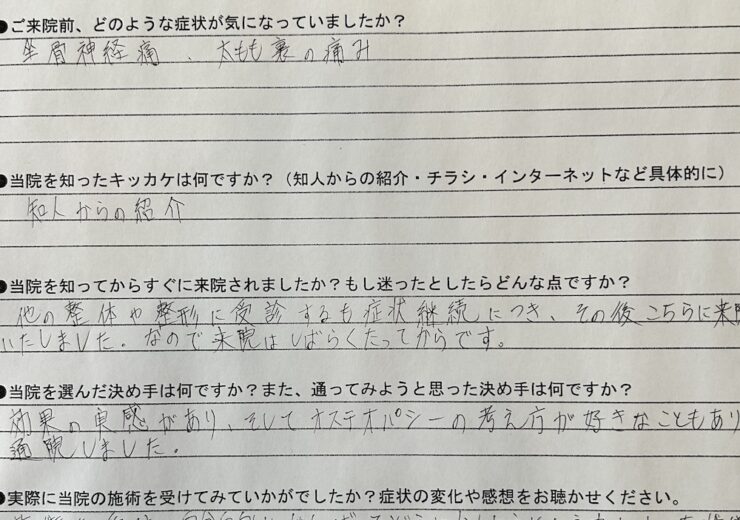 ●ご来院前、どのような症状が気になっていましたか？
坐骨神経痛、太もも裏の痛み
●当院を知ったキッカケは何ですか？（知人からの紹介・チラシ・インターネットなど具体的に）
知人からの紹介
●当院を知ってからすぐに来院されましたか？もし迷ったとしたらどんな点ですか？
他の整体や整形に受診するも症状継続につき、その後こちらに来院
いたしました。なので来院はしばらくたってからです。
●当院を選んだ決め手は何ですか？また、通ってみようと思った決め手は何ですか？
効果の実感があり、そしてオステオパシーの考え方が好きなこともあり
通院しました。
●実際に当院の施術を受けてみていかがでしたか？症状の変化や感想をお聴かせください。